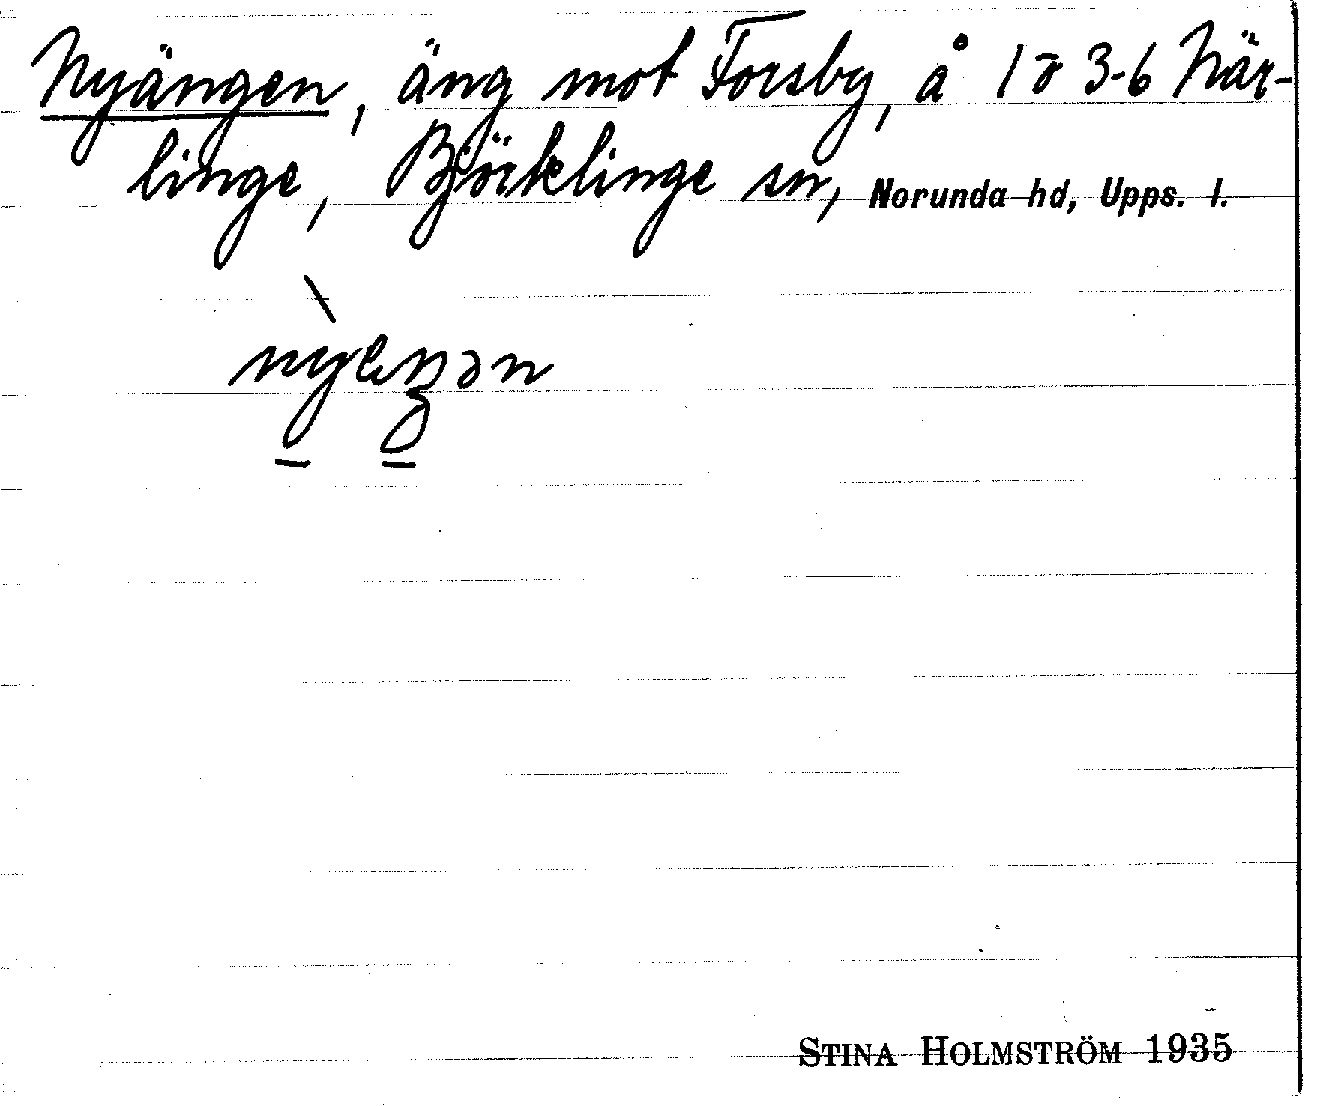 Nyängen, äng mot Forsby, å 1 o 3-6 När-
linge, Björklinge sn, Norunda hd, Upps. l.
nỳeŋən
STINA HOLMSTRÖM 1935